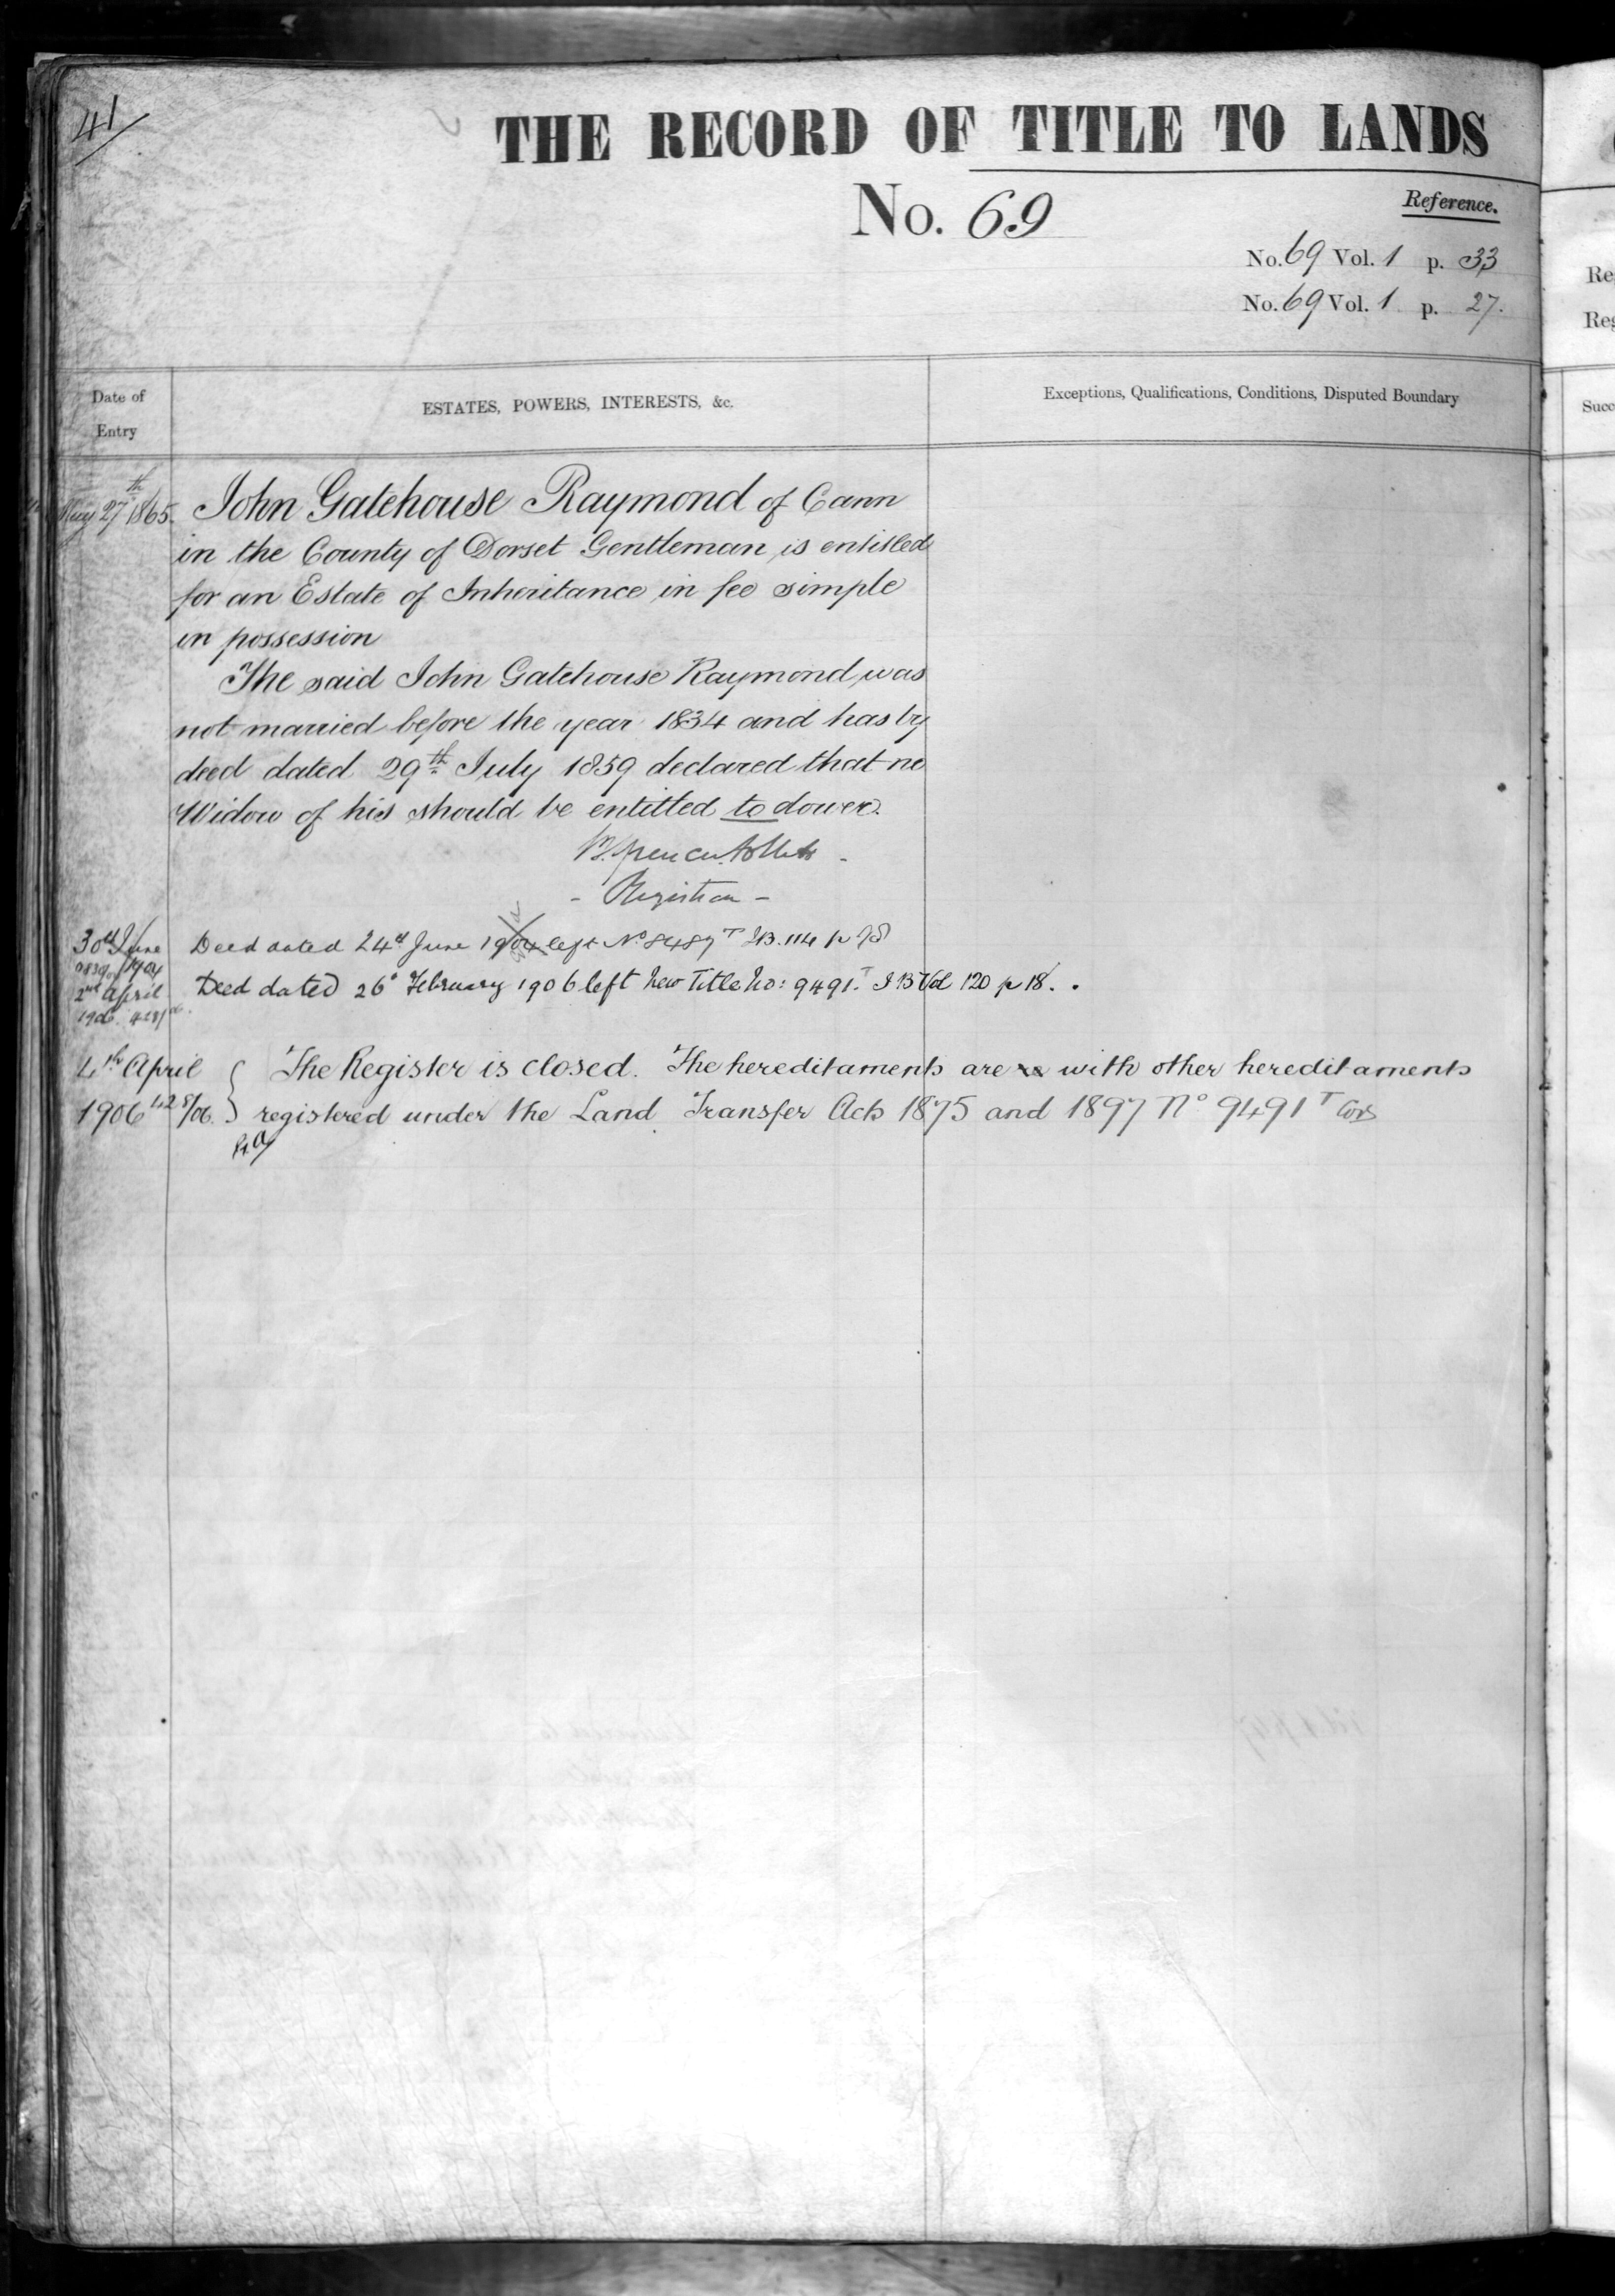 41
THE RECORD OF TITLE TO LANDS
No. 69
Reference.
No. 69 Vol. 1 p. 33
No. 69 Vol. 1 p. 27.
Date of Entry
ESTATES, POWERS, INTERESTS, &c.
Exceptions, Qualifications, Conditions, Disputed Boundary
May 27th 1865. John Gatehouse Raymond of Cann
in the County of Dorset Gentleman is entitled
for an Estate of Inheritance in fee simple
in possession
The said John Gatehouse Raymond was
not married before the year 1834 and has by
deed dated 29th July 1859 declared that no
Widow of his should be entitled to dower.
Registrar
30th June 1904 Deed dated 24th June 1904 left No 8487T I.B. 114 p
2nd April 1906 Deed dated 26th February 1906 left New Title No: 9491T I B Vol 120 p 18.
4th April The Register is closed. The hereditaments are with other hereditaments
1906 428/06. registered under the Land Transfer Acts 1875 and 1897 No 9491T
Re
Reg
Succ